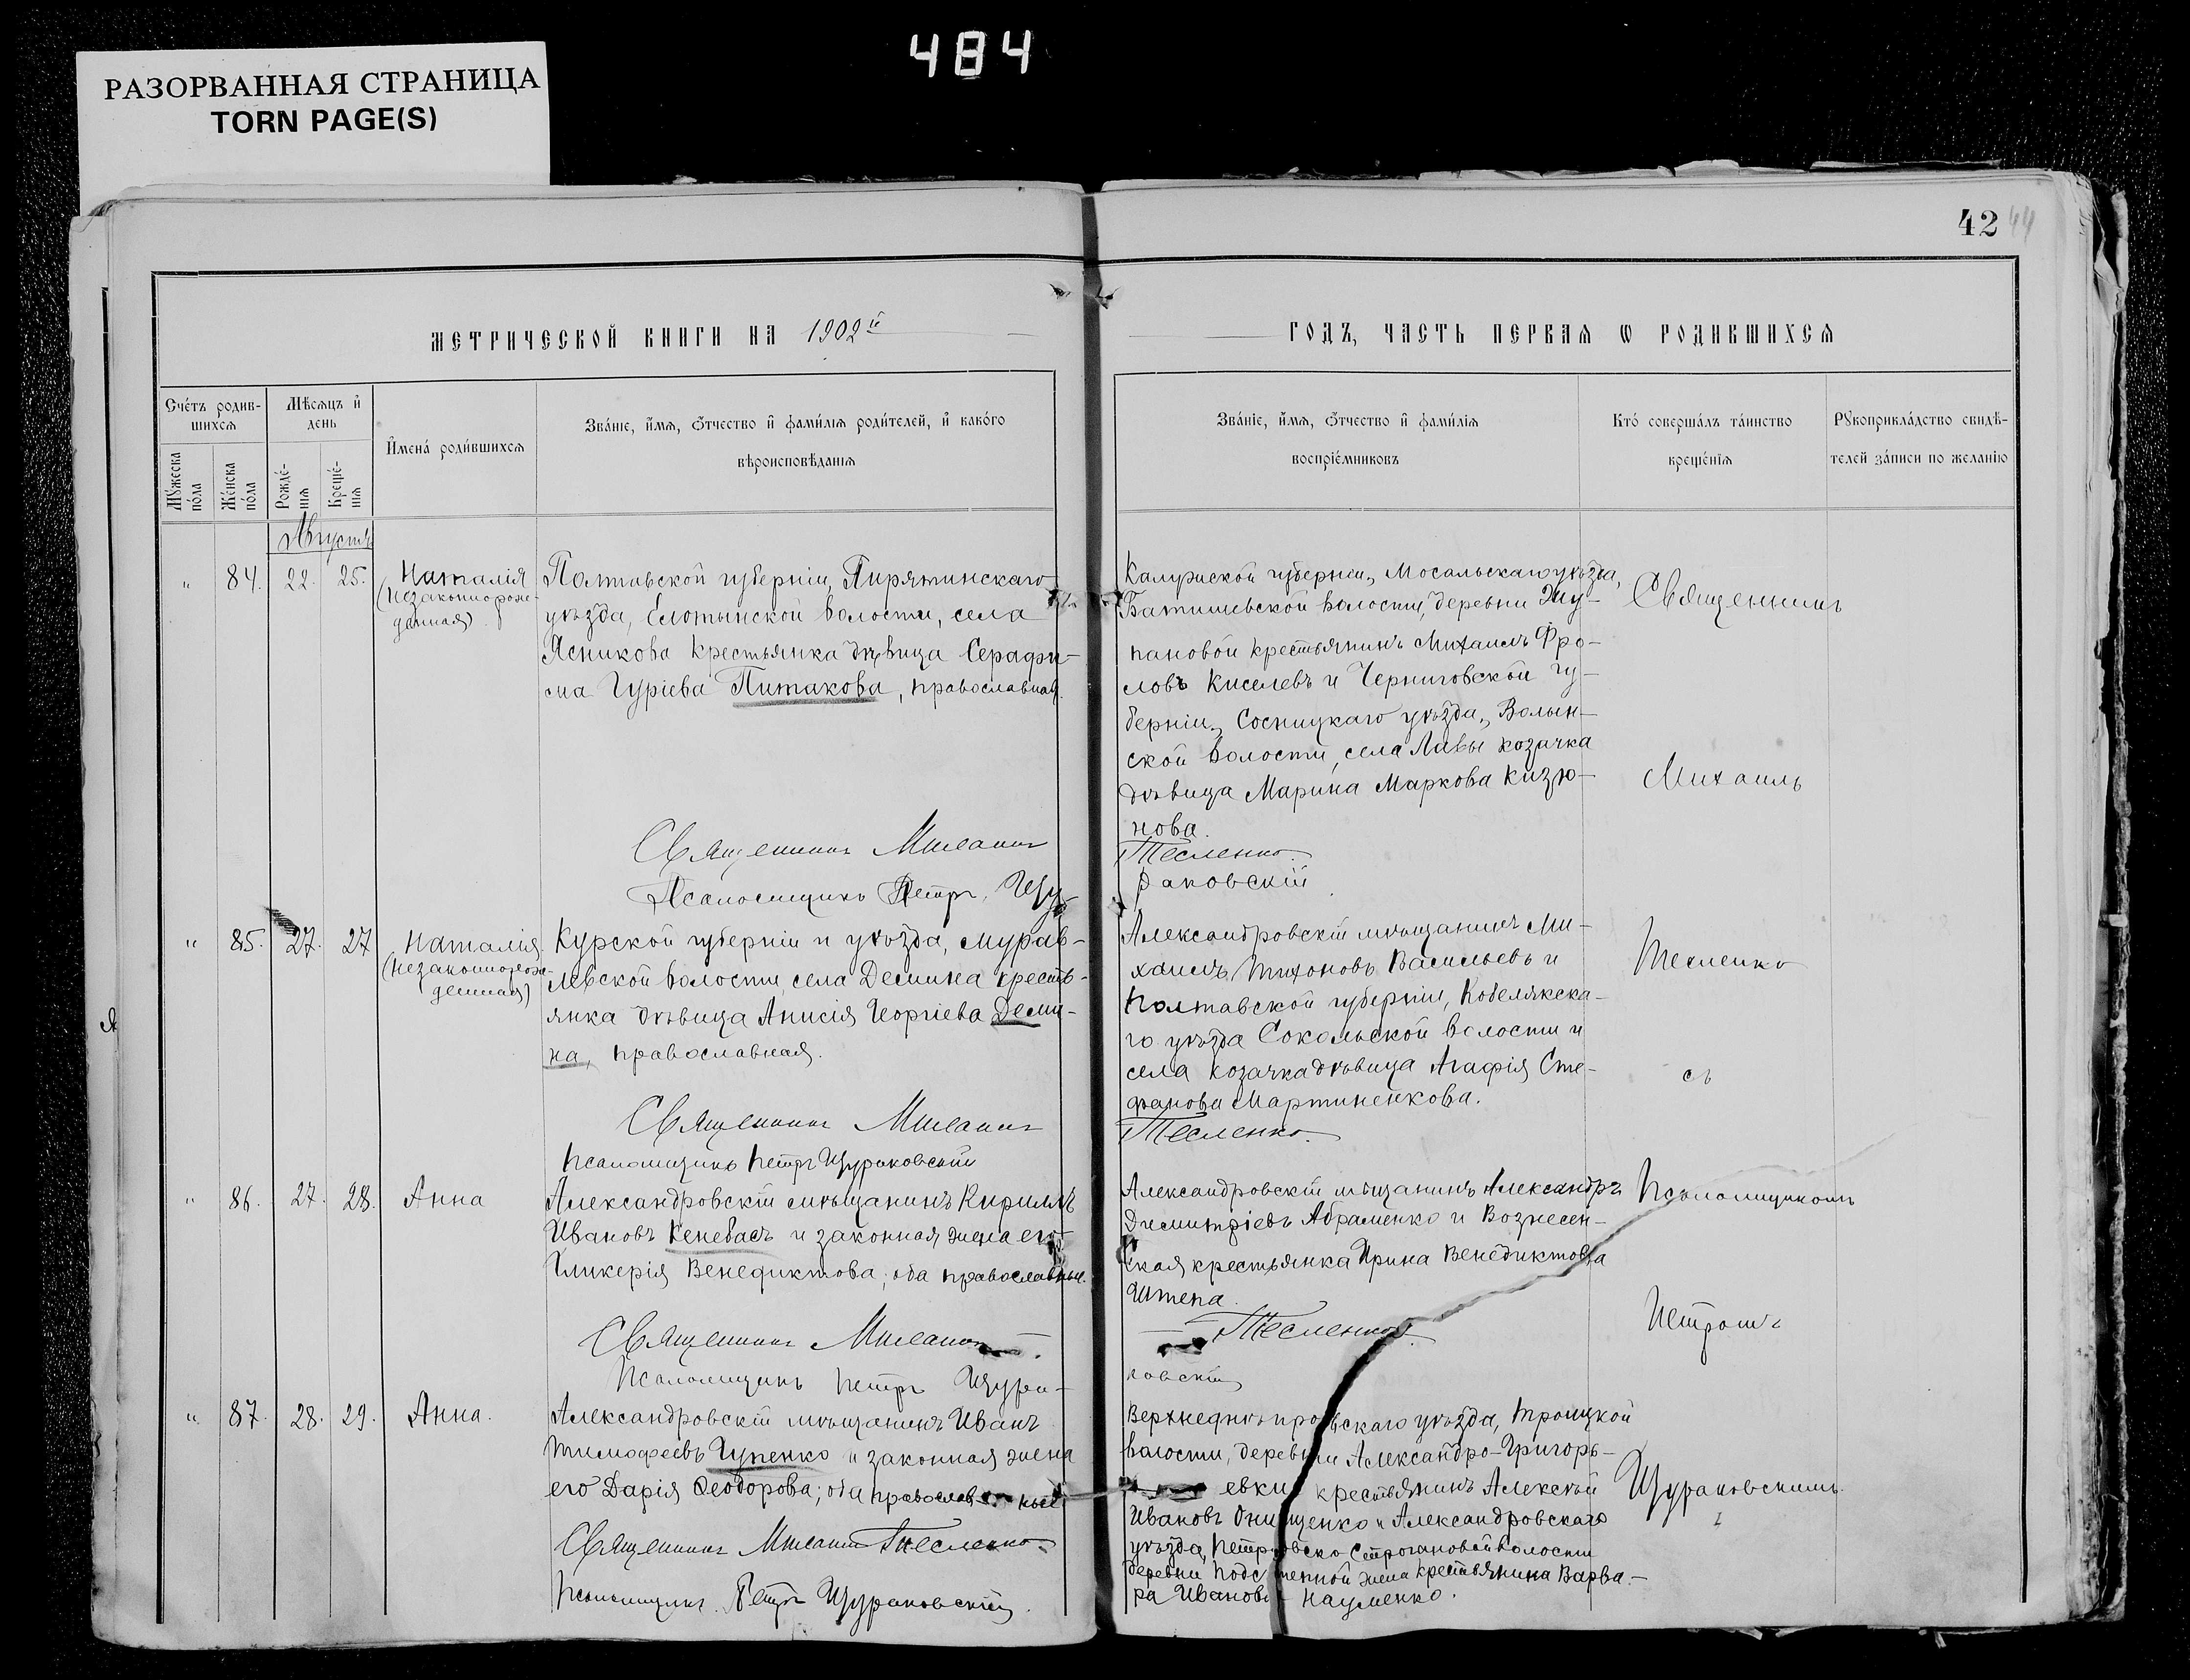 484
РАЗОРВАННАЯ СТРАНИЦА
TORN PAGE(S)
42 44
МЕТРИЧЕСКОЙ КНИГИ НА 1902й
ГОДЪ, ЧАСТЬ ПЕРВАЯ Ѡ РОДИВШИХСЯ
Счетъ родив-
шихся
Мужеска пола
Женска пола
Мѣсяцъ и
день
Рожде-
нія
Креще-
нія
Имена родившихся
Званіе, имя, отчество и фамилія родителей, и какого
вѣроисповѣданія
Званіе, имя, отчество и фамилія
воспріемниковъ
Кто совершалъ таинство
крещенія
Рукоприкладство свидѣ-
телей записи по желанію
Августъ
" 84. 22. 25. Наталія
(незаконнорож-
денная)
Полтавской губерніи, Пирятинскаго
уѣзда, волости, села
Ясникова крестьянка дѣвица Серафи-
ма Гуріева Питакова, православная.
Священникъ
Псаломщикъ Петръ Щу-
Калужской губерніи, Мосальскаго уѣзда,
волости, деревни Жу-
пановой крестьянинъ Михаилъ Фро-
ловъ Киселевъ и Черниговской гу-
берніи, Сосницкаго уѣзда, Волын-
ской волости, села Лавы козачка
дѣвица Марина Маркова Кизю-
нова.
Тесленко.
раковскій
Священникъ
Михаилъ
" 85. 27. 27 Наталія
(незаконнорож-
денная)
Курской губерніи и уѣзда, Мурав-
левской волости, села Демина кресть-
янка дѣвица Анисія Георгіева Деми-
на, православная.
Священникъ
Псаломщикъ Петръ Щураковскій
Александровскій мѣщанинъ Ми-
хаилъ Тихоновъ Васильевъ и
Полтавской губерніи, Кобелякска-
го уѣзда Сокольской волости и
села козачка дѣвица Агафія Сте-
фанова Мартиненкова.
Тесленко.
Тесленко
съ
" 86. 27. 28. Анна
Александровскій мѣщанинъ Кириллъ
Ивановъ Кенебасъ и законная жена его
Гликерія Венедиктова; оба православные.
Священникъ
Псаломщикъ Петръ Щура-
Александровскій мѣщанинъ Александръ
Димитріевъ Абраменко и Вознесен-
ская крестьянка Ирина Венедиктова
Штепа.
Тесленко.
ковскій
Псаломщикомъ
Петромъ
" 87. 28. 29. Анна.
Александровскій мѣщанинъ Иванъ
Тимофеевъ Гупенко и законная жена
его Дарія Ѳеодорова; оба православные
Священникъ Тесленко.
Псаломщикъ Петръ Щураковскій.
Верхнеднѣпровскаго уѣзда, Троицкой
волости, деревни Александро-Григорь-
евки крестьянинъ Алексѣй
Ивановъ Онищенко и Александровскаго
уѣзда, Петровско Строгановой волости
деревни Подстепной жена крестьянина Варва-
ра Иванова Науменко.
Щураковскимъ